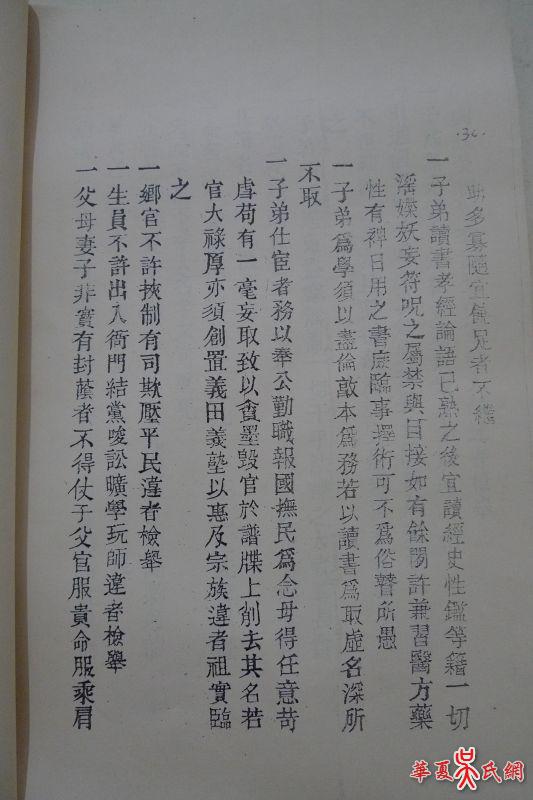 36
助多寡隨宜無兄者不繼
一子弟讀書孝經論語已熟之後宜讀經史性鑑等籍一切
淫媟妖妄符呪之屬禁與目接如有餘閑許兼習醫方藥
性有裨日用之書庶臨事擇術可不爲俗瞽所愚
一子弟爲學須以盡倫敦本爲務若以讀書爲取虛名深所
不取
一子弟仕宦者務以奉公勤職報國撫民爲念毋得任意苛
虐苟有一毫妄取致以貪墨毀官於譜牒上削去其名若
官大祿厚亦須創置義田義塾以惠及宗族違者祖實臨
之
一鄉官不許挾制有司欺壓平民違者檢舉
一生員不許出入衙門結黨唆訟曠學玩師違者檢舉
一父母妻子非實有封蔭者不得仗于父官服貴命服乘肩
華夏吳氏網